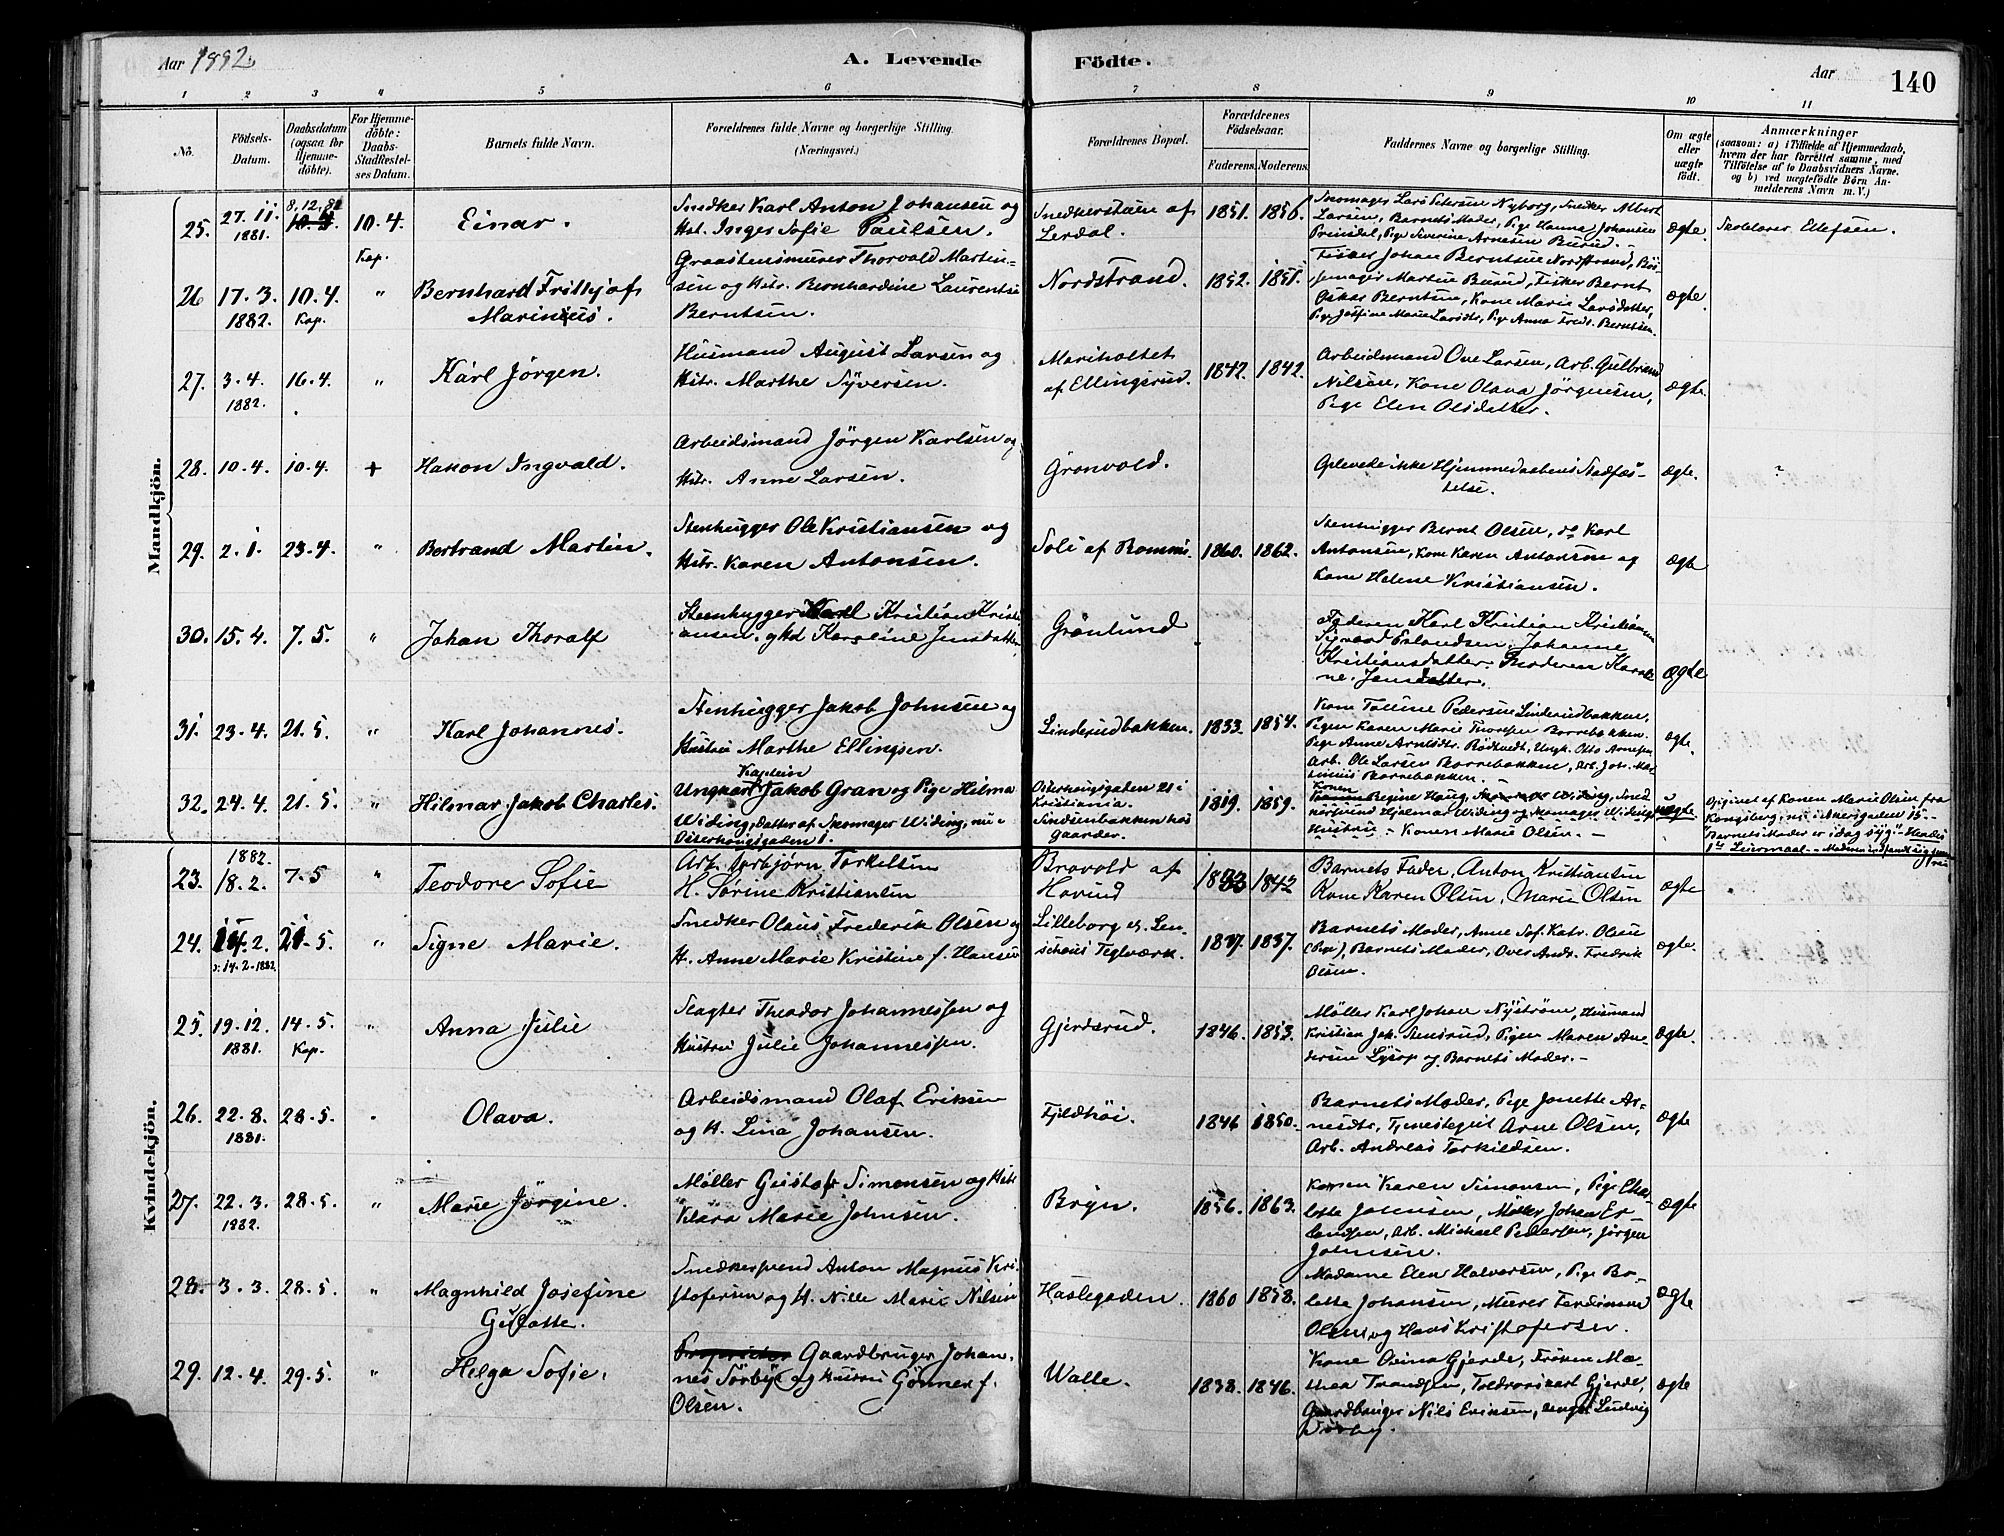 Aar 1882.
A. Levende Födte.
Aar
140
1 2 3 4 5 6 7 8 9 10 11
No.
Födsels-Datum.
Daabsdatum (ogsaa for Hjemmedöbte).
For Hjemmedöbte: Daabs-Stadfestelses Datum.
Barnets fulde Navn.
Forældrenes fulde Navne og borgerlige Stilling. (Næringsvei.)
Forældrenes Bopæl.
Forældrenes Födselsaar.
Faderens. Moderens.
Faddernes Navne og borgerlige Stilling.
Om ægte eller uægte födt.
Anmærkninger
(saasom: a) i Tilfælde af Hjemmedaab, hvem der har forrettet samme, med Tilföielse af to Daabsvidners Navne. og b) ved uægtefödte Börn Anmelderens Navn m. V.)
Mandkjön.
25. 27.11. 1881. 8.12.81 10.4 10.4. Kap. Einar.
Snedker Karl Anton Johansen og
Hst. Inger Sofie Paulsen.
Snedkerstuen af
Lerdal.
1851. 1856.
Larsen, Barnets Moder, Pige Hanna Johansen
ægte. Skolelærer Ellefsen.
26 17.3. 1882. 10.4. Kap. " Bernhard Frithjof
Marinius.
Graastensmurer Thorvald Martin=
sen og Hstr. Bernhardine Laurentse
Berntsen.
Nordstrand. 1852. 1851.
Fisker Johan Berntsen Nordstrand,
Oskar Berntsen, Kone Marie Larsdatter,
Pige Josefine Marie Larsdtr, Pige Anna Fredr. Berntsen.
ægte
27. 3.4. 1882. 16.4. " Karl Jörgen.
Husmand August Larsen og
Hstr. Marthe Syversen.
Mariholtet
af Ellingsrud.
1842. 1842.
Arbeidsmand Ove Larsen, Arb. Gulbrand
Nilsen, Kone Olava Jörgensen,
Pige Elen Olsdatter.
ægte.
28. 10.4. 10.4. + Hakon Ingvald.
Arbeidsmand Jörgen Karlsen og
Hstr. Anne Larsen.
Grönvold.
Oplevede ikke Hjemmedaabens Stadfæs-
telse.
ægte.
29. 2.1. 23.4. " Bertrand Martin.
Stenhugger Ole Kristiansen og
Hstr. Karen Antonsen.
Soli af Rommi.
1860. 1862.
Stenhugger Bernt Olsen, do Karl
Antonsen, Kone Karen Antonsen og
Kone Helene Kristiansen.
ægte
30. 15.4. 7.5. " Johan Thoralf
Stenhugger Karl Kristian Kristi
ansen. og Hst Karoline Jensdatter
Grönlund
Faderen Karl Kristian Kristiansen
Sigvard Erlandsen, Johanne
Kristiansdatter. Moderen Karoli
ne. Jensdatter.
ægte
31. 23.4. 21.5. " Karl Johannes.
Stenhugger Jakob Johnsen og
Hustru Marthe Ellingsen.
Linderudbakken. 1833. 1854.
Kone Toline Pedersen Linderudbakken,
Pigen Karen Marie Thoresen Borrebakken.
Pige Anne Arnesdtr. Rödtvedt, Ungk. Otto Arnesen
Arb. Ole Larsen Borrebakken,
ægte.
32. 24.4. 21.5. " Hilmar Jakob Charles.
Kaptein
Ungkarl Jakob Gran og Pige Hilma
Widing, Datter af Skomager Widing, nu i
Osterhougsgaden 1.
Osterhougsgaden 21 i
Kristiania.
Sindsenbakken hos
Gaarder.
1819. 1859.
Konen
Regine Haug,
Hjelmar Widing og Skomager Widings
Hustru - Konen Marie Olsen. -
uægte.
Opgivet af Konen Marie Olsen fra
Kongsberg, nu i Akersgaden 15.-
"Barnets Moder er idag syg" -
1ste Leiermaal.-
Kvindekjön.
23. 1882. 18.2. 7.5 " Teodore Sofie
Arb. Torbjörn Torkelsen
H. Sörine Kristiansen
Bravold af
Hovind
1842
Barnets Fader, Anton Kristiansen
Kone Karen Olsen, Marie Olsen
ægte
24. 14.2. 21.5. " Signe Marie.
ɔ: 14.2.1882.
Snedker Olaus Frederik Olsen og
H. Anne Marie Kristine f. Hansen
Lilleborg v. Len-
schous Teglværk.
1837. 1837.
Barnets Moder, Anne Sof. Katr. Olsen
Barnets Moder, Oves Andr. Fredrik
Olsen.
ægte.
25 19.12. 1881. 14.5. Kap. " Anna Julie
Slagter Theodor Johannessen og
Hustru Julie Johannessen.
Gjerdsrud. 1846. 1853.
Møller Karl Johan Nyström, Husmand
Kristian Joh. Stensrud, Pigen Maren An-
dersen Lysop og Barnets Moder.-
ægte.
26. 22.8. 1881. 28.5. " Olava.
Arbeidsmand Olaf Eriksen
og H. Lina Johansen.
Fjeldhöi. 1846 1850.
Barnets Moder, Pige Jonette Ar-
nesdtr, Tjenestegut Arne Olsen,
Arb. Andreas Torkildsen.
ægte
27. 22.3. 1882. 28.5. " Marie Jörgine.
Møller Gustaf Simensen og Hstr
Klara Marie Johnsen.
Bryn. 1856. 1863.
Konen Karen Simonsen, Pige Cha-
lotte Johnsen, Møller Johan Er-
landsen, Arb. Michael Pedersen, Jörgen
Johnsen.
ægte
28. 3.3. 28.5. " Magnhild Josefine
Gusatte.
Snedkersvend Anton Magnus Kri-
stofersen og H. Nille Marie Nilsen
Haslegaden. 1860 1858.
Madame Elen Halvorsen, Pige Bo-
lette Johansen, Murer Ferdinand
Olsen og Hans Kristofersen.
ægte
29. 12.4. 29.5. " Helga Sofie.
Proprietær Gaardbruger Johan-
nes Sörbye og Hustru Gönner f.
Olsen.
Walle. 1838. 1846.
Kone Ovina Gjerde, Fröken Ma-
thea Trandsen, Gjerde,
Gaardbruger Nils Eriksen, Ludvig
Sörby.
ægte